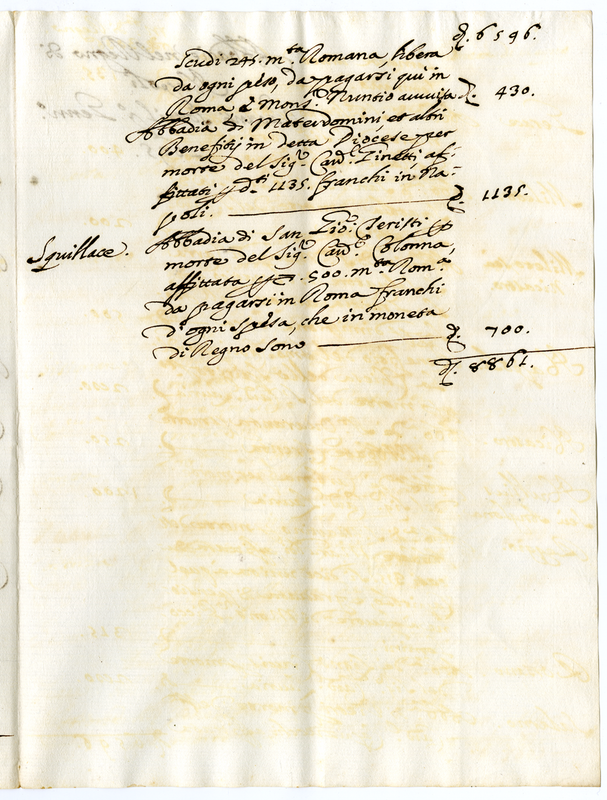 ḍ. 6596.
scudi 245. m.ta Romana, libera
da ogni peso, da pagarsi qui in
Roma, e Mons.r Nuntio avvisa ḍ. 430.
Abbadia di Materdomini, et altri
Benefitij in detta Diocese per
morte del Sig.r Card. Ginetti, af-
fittati p d.ti 1135. franchi in Na-
poli. ḍ. 1135.
Squillace. Abbadia di San Gio: Teristi p
morte del Sig.r Card. Colonna,
affittata 500. m.ta Rom.a
da pagarsi in Roma franchi
d'ogni spesa, che in moneta
di Regno sono ḍ. 700.
ḍ. 8861.